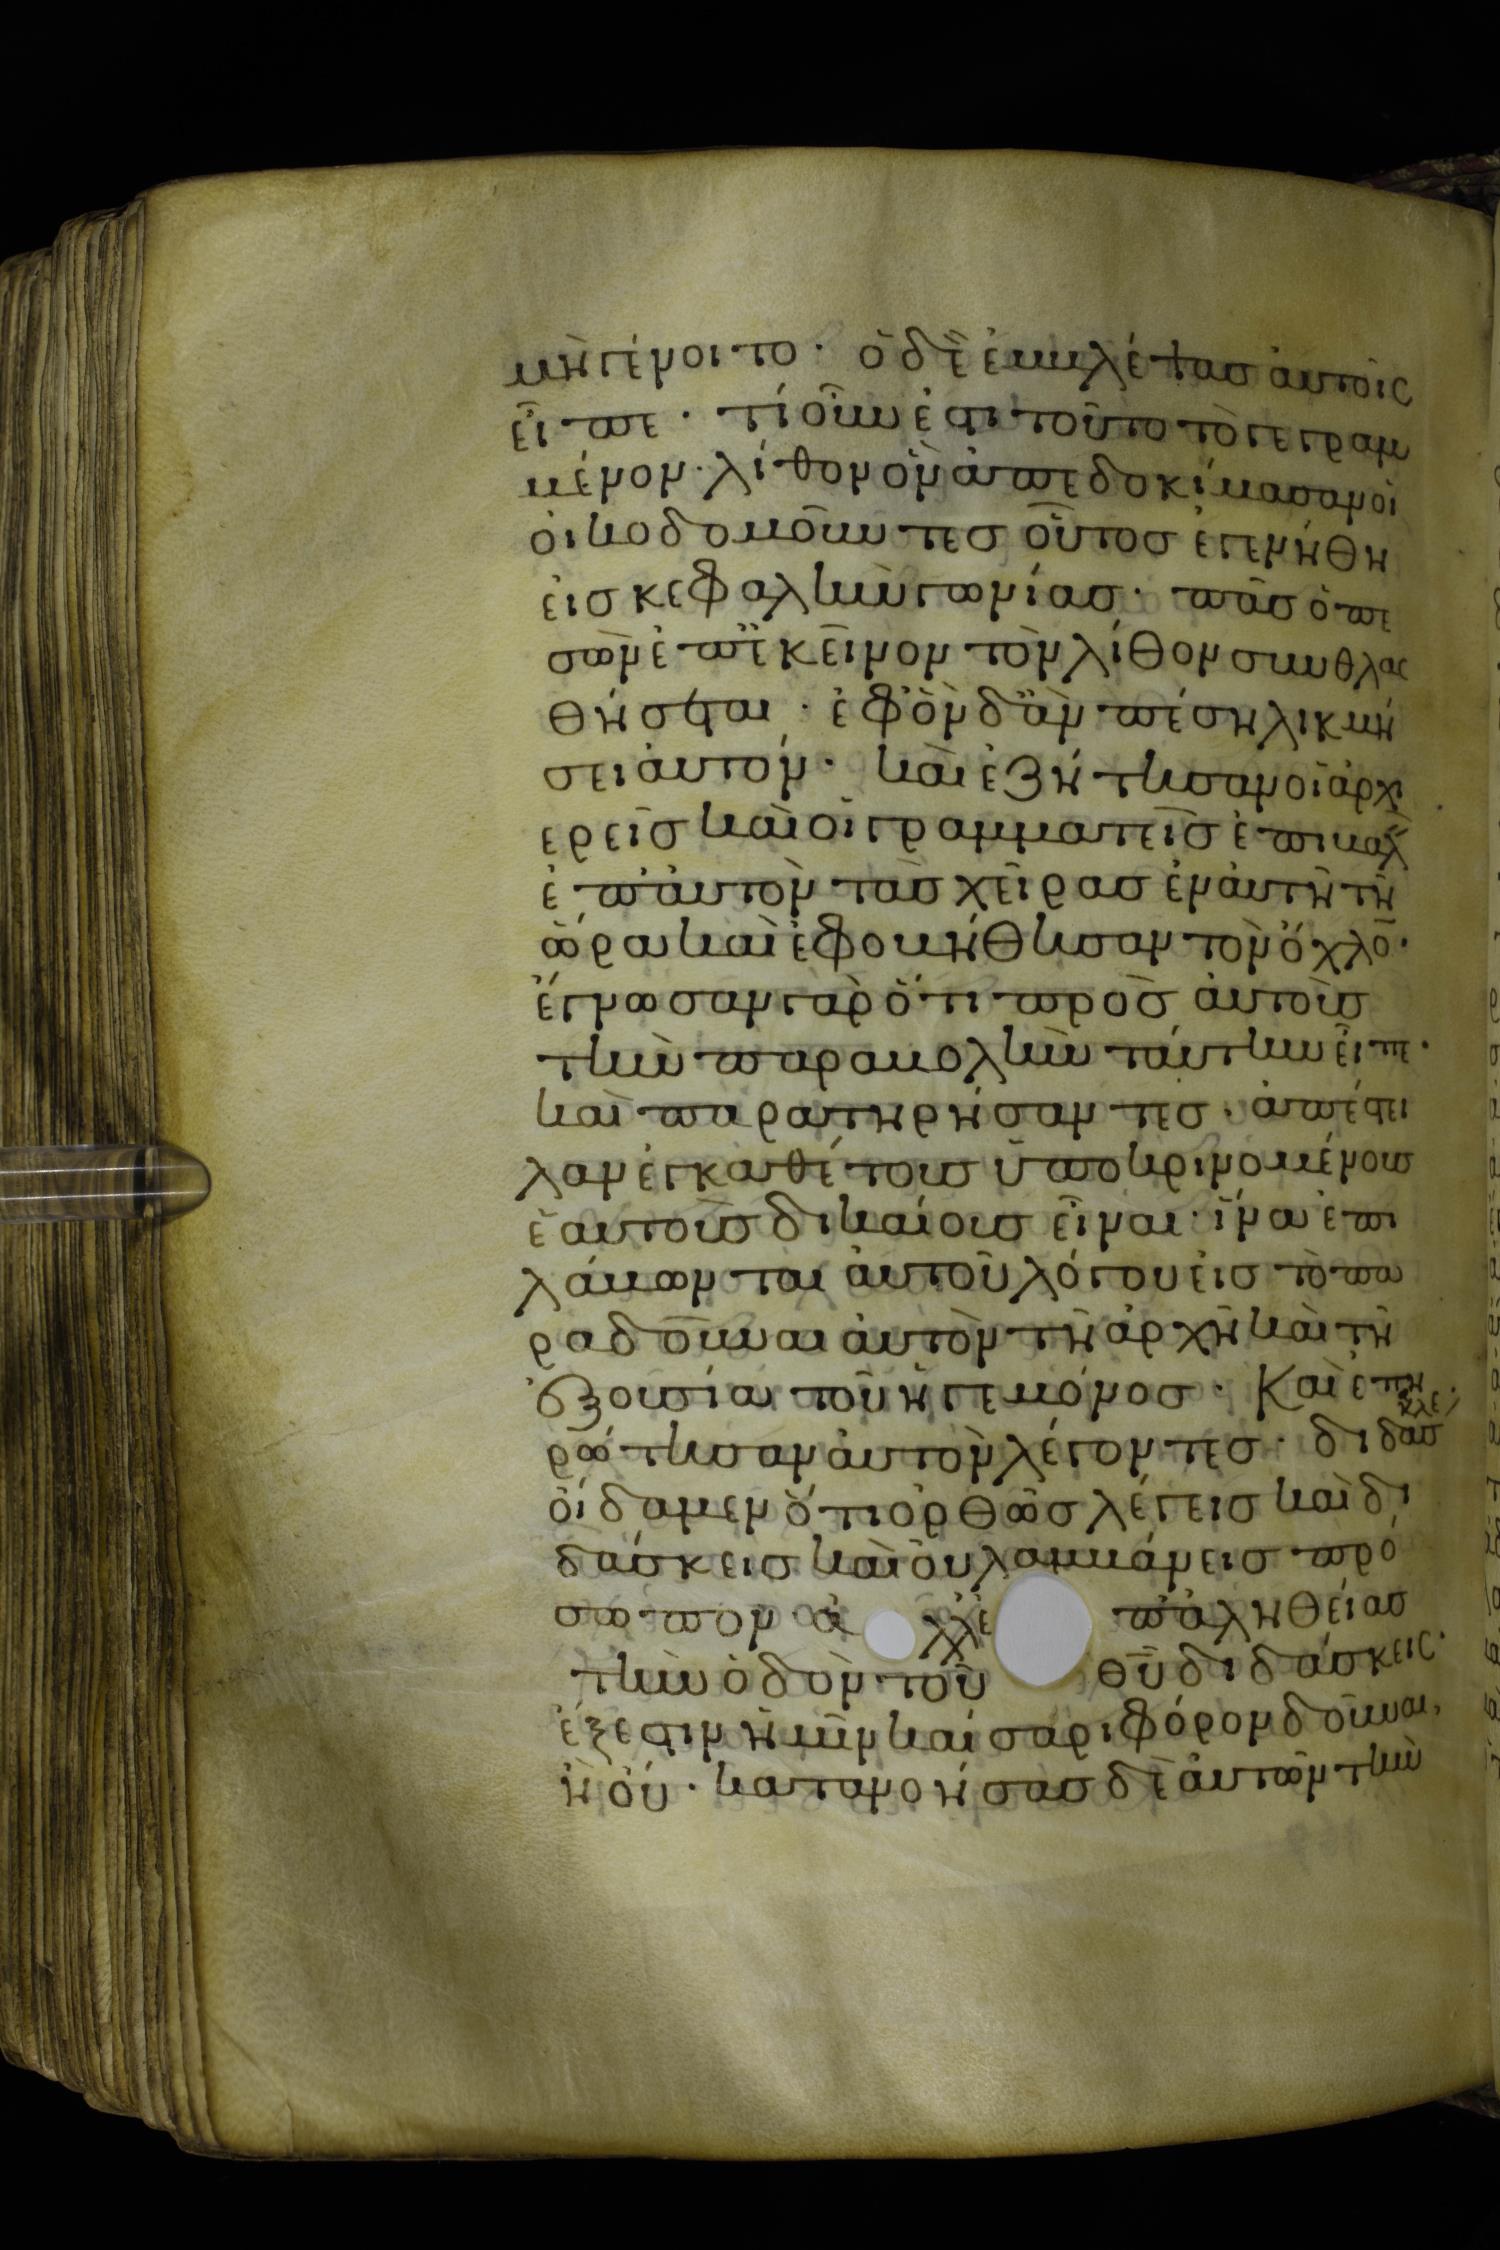 μὴ γένοιτο · ὁ δὲ ἐμβλέψας ἀυτοῖς
εἶπε · τί οὖν ἐστι τοῦτο τὸ γεγραμ
μένον · λίθον ὃν ἀπεδοκίμασαν οἱ
ὀικοδομοῦντες οὗτος ἐγενήθη
ἐις κεφαλὴν γωνίας · πᾶς ὁ πε
σὼν ἐπ ἐκεῖνον τὸν λίθον συνθλας
θήσεται · ἐφ ὃν δ ἂν πέση λικμή
σει ἀυτόν · καὶ ἐζήτησαν οἱ ἀρχι
ερεῖς καὶ οἱ γραμματεῖς ἐπιβαλ
ἐπ ἀυτὸν τὰς χεῖρας ἐν ἀυτῆ τῆ
ὥρα καὶ ἐφοβήθησαν τὸν ὄχλο̄ ·
ἔγνωσαν γὰρ ὅτι πρὸς ἀυτοὺς
τὴν παραβολὴν τάυτην εἶπε ·
καὶ παρατηρήσαντες · ἀπέστει
λαν ἐγκαθέτους ὑποκρινομένους
ἑαυτοὺς δικαίους εἶναι · ἵνα ἐπι
λάβωνται ἀυτοῦ λόγου ἐις τὸ πα
ραδοῦναι ἀυτὸν τῆ ἀρχῆ καὶ τῆ
ἐξουσία τοῦ ἡγεμόνος · Καὶ ἐπη
ρώτησαν ἀυτὸν λέγοντες · διδάσκαλε ·
ὀίδαμεν ὅτι ὀρθῶς λέγεις καὶ δι
δάσκεις καὶ ὀυ λαμβάνεις πρό
σωπον ἀλλ ἐπ ἀληθείας
τὴν ὁδὸν τοῦ θῦ διδάσκεις ·
ἔξεστιν ἡμῖν καίσαρι φόρον δοῦναι,
ἢ ὀύ · κατανοήσας δὲ ἀυτῶν τὴν